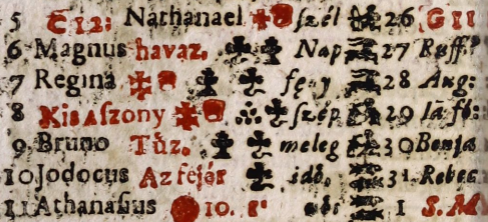 5 C 12: Nathanael ſzél 26 G 11
6 Magnus havaz. Nap 27 Ruff.
7 Regina 28 Aug:
8 Kis Aſzony ſzép 29 Iā fö:
9 Bruno Tüz. meleg 30 Benja
10 Jodocus Az fejár idö. 31 Rebec
11 Athanaſius 10. 1 S. M